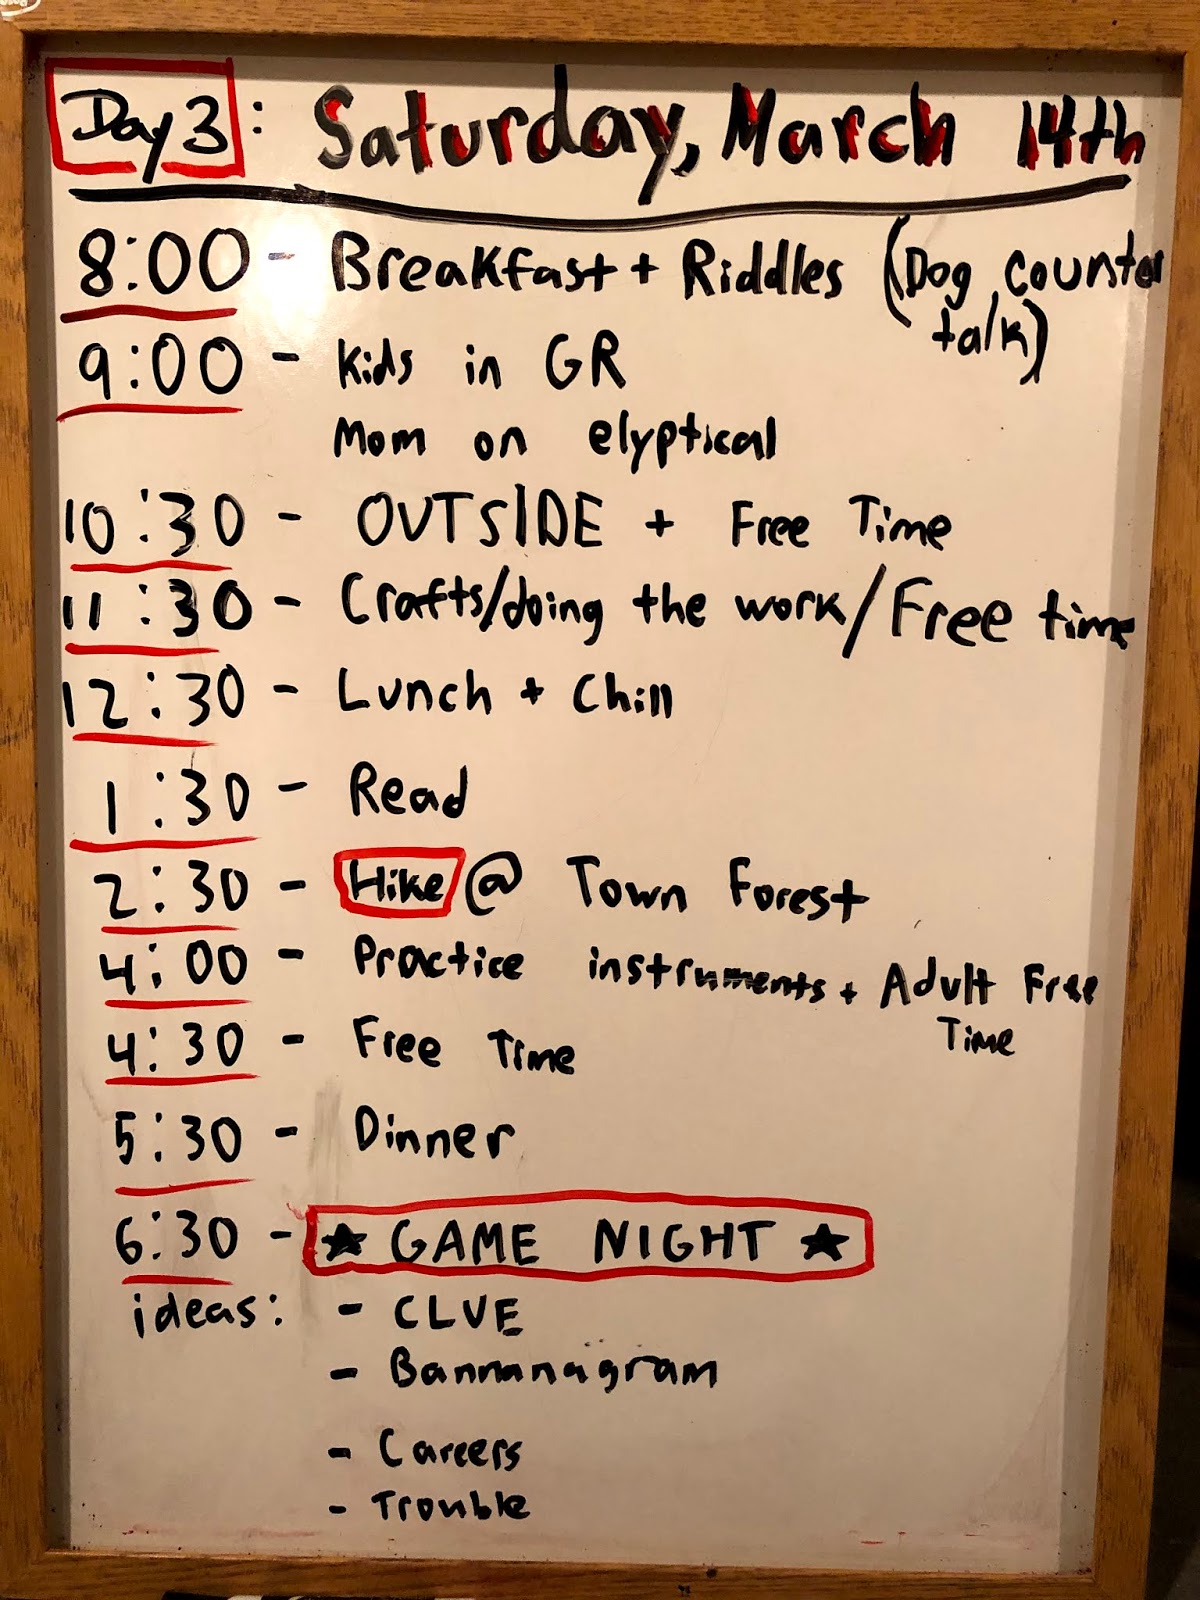 Day 3: Saturday, March 14th
8:00 - Breakfast + Riddles (Dog counter
talk)
9:00 - Kids in GR
Mom on elyptical
10:30 - OUTSIDE + Free Time
11:30 - Crafts/doing the work/Free time
12:30 - Lunch + Chill
1:30 - Read
2:30 - Hike @ Town Forest
4:00 - Practice instruments + Adult Free
Time
4:30 - Free Time
5:30 - Dinner
6:30 - ★ GAME NIGHT ★
ideas: - CLUE
- Bannanagram
- Careers
- Trouble